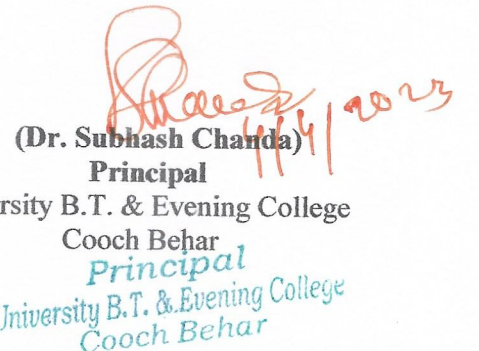 4/4/2023
(Dr. Subhash Chanda)
Principal
rsity B.T. & Evening College
Cooch Behar
Principal
University B.T. & Evening College
Cooch Behar